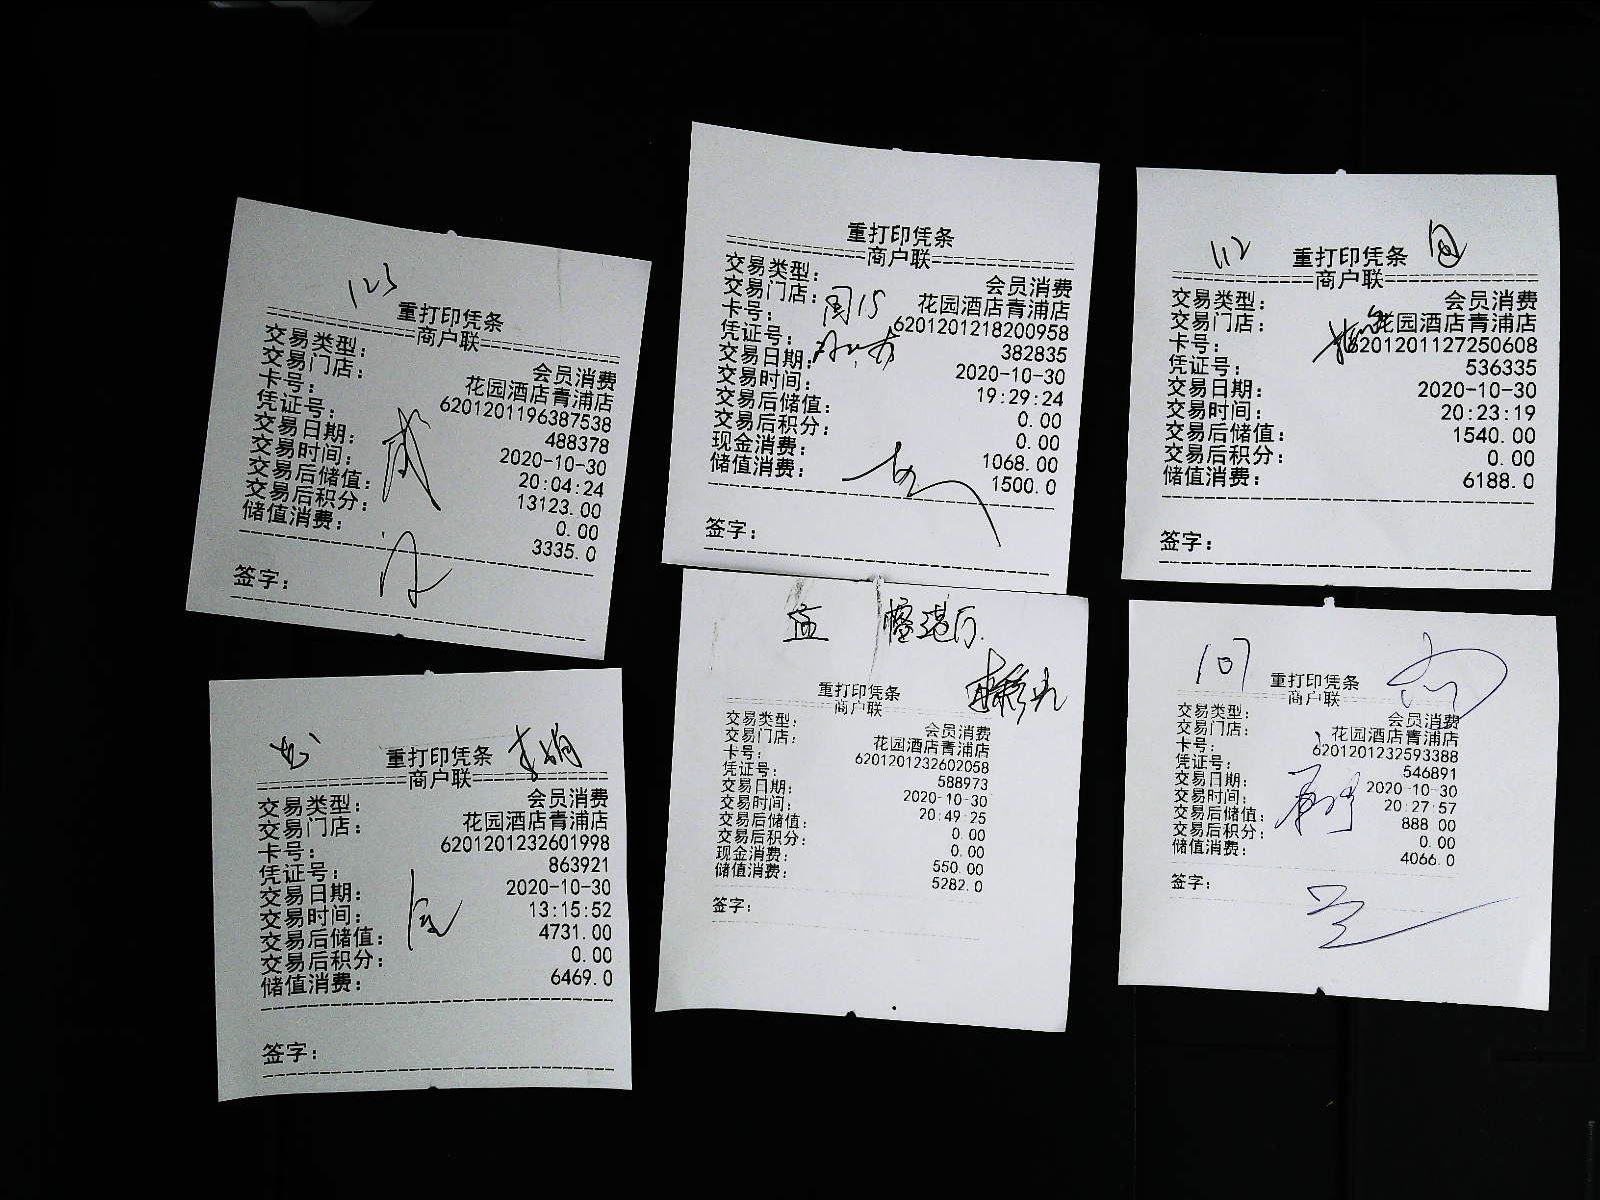 123
重打印凭条
商户联
交易类型： 会员消费
交易门店： 花园酒店青浦店
卡号： 6201201196387538
凭证号： 488378
交易日期： 2020-10-30
交易时间： 20:04:24
交易后储值： 13123.00
交易后积分： 0.00
储值消费： 3335.0
签字：
重打印凭条
商户联
交易类型： 会员消费
交易门店： 花园酒店青浦店
卡号： 6201201218200958
凭证号： 382835
交易日期： 2020-10-30
交易时间： 19:29:24
交易后储值： 0.00
交易后积分： 0.00
现金消费： 1068.00
储值消费： 1500.0
签字：
112
重打印凭条
商户联
交易类型： 会员消费
交易门店： 花园酒店青浦店
卡号： 6201201127250608
凭证号： 536335
交易日期： 2020-10-30
交易时间： 20:23:19
交易后储值： 1540.00
交易后积分： 0.00
储值消费： 6188.0
签字：
重打印凭条
商户联
交易类型： 会员消费
交易门店： 花园酒店青浦店
卡号： 6201201232601998
凭证号： 863921
交易日期： 2020-10-30
交易时间： 13:15:52
交易后储值： 4731.00
交易后积分： 0.00
储值消费： 6469.0
签字：
重打印凭条
商户联
交易类型： 会员消费
交易门店： 花园酒店青浦店
卡号： 6201201232602058
凭证号： 588973
交易日期： 2020-10-30
交易时间： 20:49:25
交易后储值： 0.00
交易后积分： 0.00
现金消费： 550.00
储值消费： 5282.0
签字：
107
重打印凭条
商户联
交易类型： 会员消费
交易门店： 花园酒店青浦店
卡号： 6201201232593388
凭证号： 546891
交易日期： 2020-10-30
交易时间： 20:27:57
交易后储值： 888.00
交易后积分： 0.00
储值消费： 4066.0
签字：